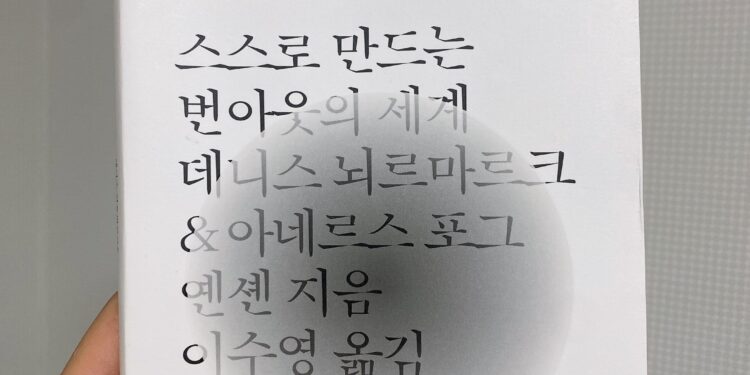 스스로 만드는
번아웃의 세계
데니스 뇌르마르크
& 아네르스 포그
옌셴 지음
이수영 옮김